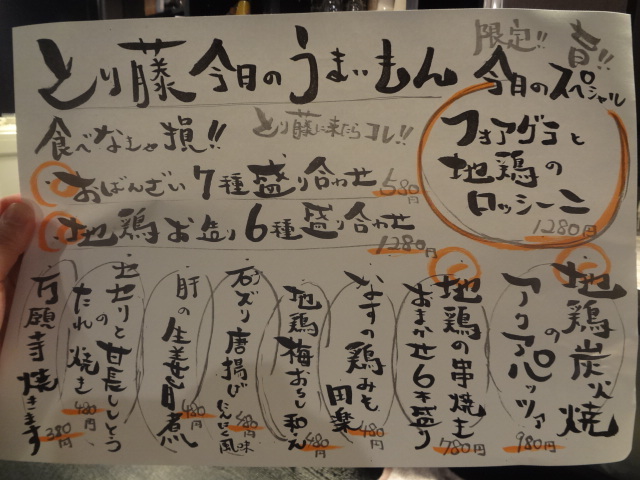 とり藤 今日のうまいもん
限定!! 旨!!
今日のスペシャル
フォアグラと
地鶏の
ロッシーニ
1280円
食べなきゃ損!!
とり藤に来たらコレ!!
おばんざい7種盛り合わせ 580円
地鶏お造り6種盛り合わせ 1280円
地鶏炭火焼
の
アクアパッツァ
980円
地鶏の串焼き
おまかせ6本盛り
780円
なすの鶏みそ
田楽
480円
地鶏梅おろし和え
480円
砂ズリ唐揚げ
にんにく風味
480円
肝の生姜旨煮
480円
セセリと甘長ししとう
の
たれ焼き
480円
万願寺焼きます
380円